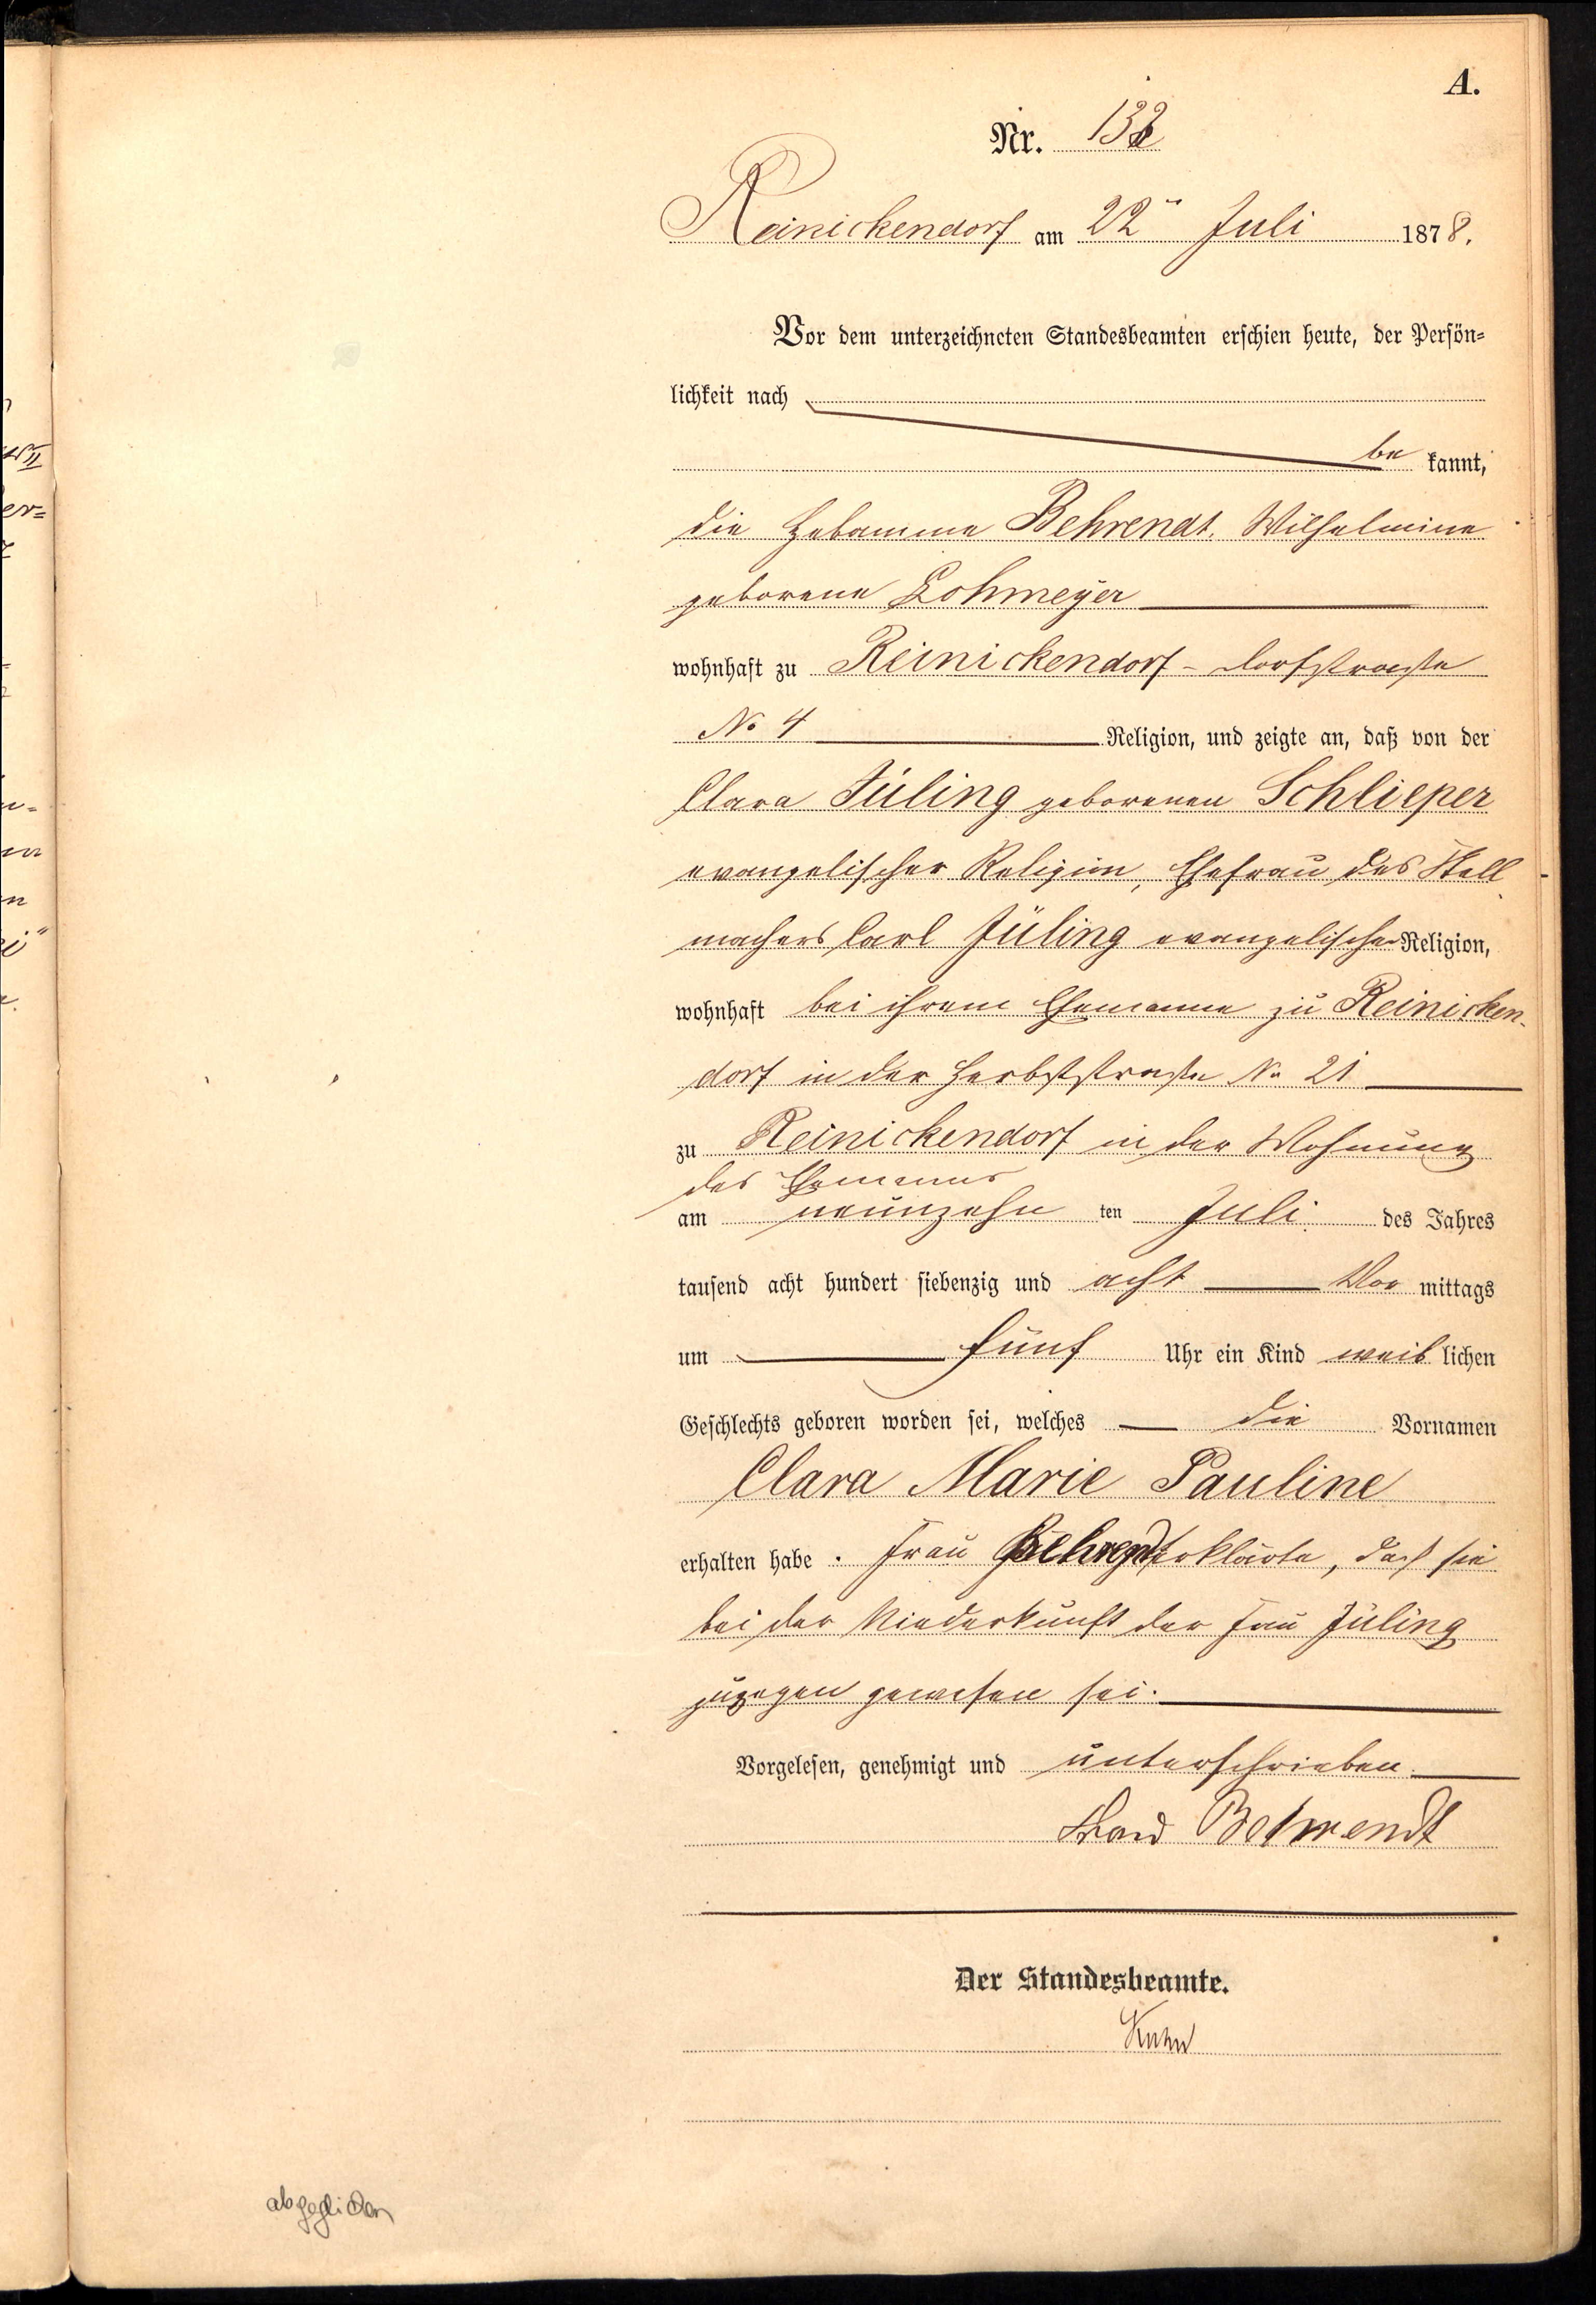 A.
Nr. 132
Reinickendorf am 22ten Juli 1878.
Vor dem unterzeichneten Standesbeamten erschien heute, der Persön=
lichkeit nach
be kannt,
die Hebamme Behrendt, Wilhelmine
geborene Lohmeyer
wohnhaft zu Reinickendorf - Dorfstraße
No 4 Religion, und zeigte an, daß von der
Clara Jüling geborenen Schlieper
evangelischer Religion, Ehefrau des Stell
machers Carl Jüling evangelischer Religion,
wohnhaft bei ihrem Ehemanne zu Reinicken-
dorf in der Herbststraße No 21
zu Reinickendorf in der Wohnung
des Ehemanns
am neunzehn ten Juli des Jahres
tausend acht hundert siebenzig und acht Vor mittags
um fünf Uhr ein Kind weib lichen
Geschlechts geboren worden sei, welches die Vornamen
Clara Marie Pauline
erhalten habe. Frau Behrendt erklärte, daß sie
bei der Niederkunft der Frau Jüling
zugegen gewesen sei.
Vorgelesen, genehmigt und unterschrieben
Behrendt
Der Standesbeamte.
Kuhn
abgeglichen